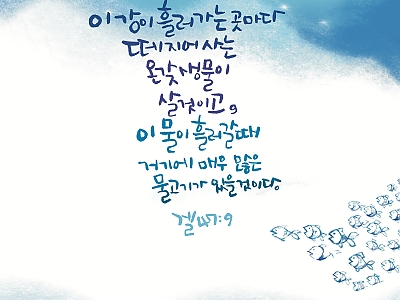 이 강이 흘러가는 곳마다
떼 지어 사는
온갖 생물이
살 것이고,
이 물이 흘러갈 때
거기에 매우 많은
물고기가 있을 것이다.
겔 47:9